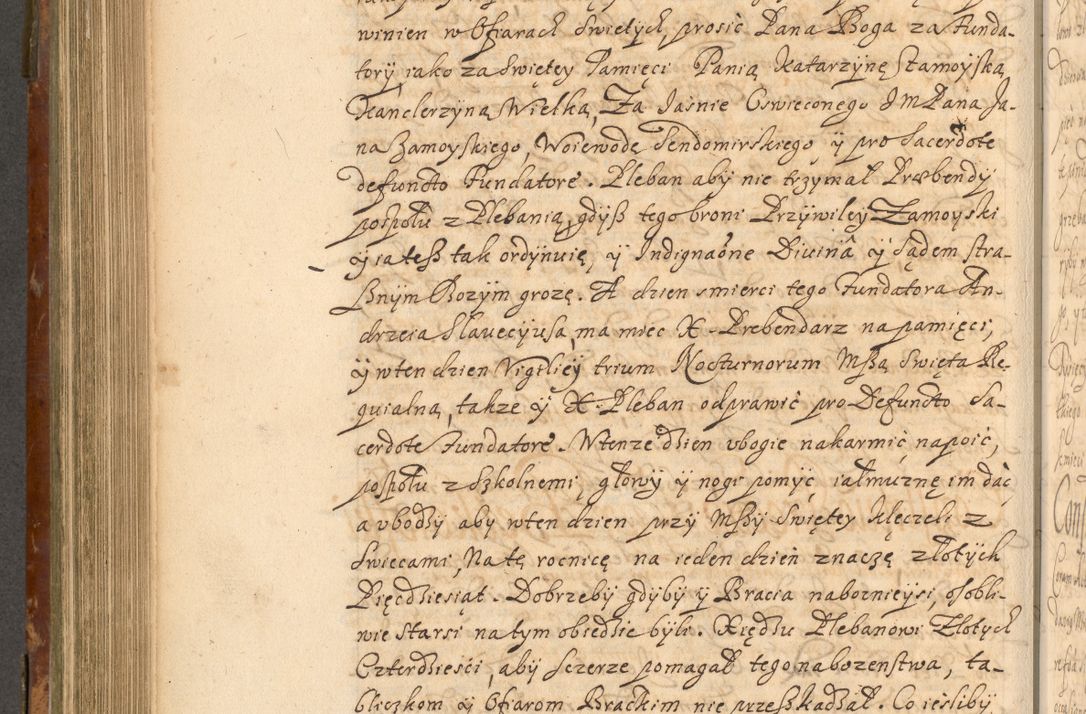 winien w Ofiarach Swietych prosić Pana Boga za Funda-
tory iako za swiętey Pamięci Panią Katarzynę Stamoyską
Kanclerzyną Wielką, Za Jasnie Oswieconego JmPana Ja-
na Zamoyskiego, Woiewodę Sendomirskiego y pro Sacerdote
defuncto Fundatore. Pleban aby nie trzymał Præbendy
pospołu z Plebanią, gdyß tego broni Przywiley Zamoyski
y ia teß tak ordynuię, y Indignaône Diuinâ y Sądem stra-
ßnym Bozym grozę. A dzien smierci tego Fundatora An-
drzeia Slauecyusa, ma miec X. Prebendarz na pamięci,
y wten dzien Vigiliey trium Nocturnorum Mßą Swięta Re-
quialną, takze y X. Pleban odprawić pro Defuncto Sa-
cerdote Fundatore. Wtenze dzien vbogie nakarmić, napoić,
pospołu z Szkolnemi, głowy y nogi pomyć iałmuznę im dać
a vbodzy aby wten dzien przy Mßy Swiętey klęczeli z
Swiecami, Na tę rocnicę na ieden dzień znaczę złotych
Pięcdziesiąt. Dobrzeby gdyby y Bracia naboznieysi, osobli-
wie Starsi na tym obiedzie byli. Xiędzu Plebanowi Złotych
Czterdziesći, aby sczerze pomagał tego nabozenstwa, ta-
bliczkom y Ofiarom Brackim nie przeßkadzał. Co iesliby